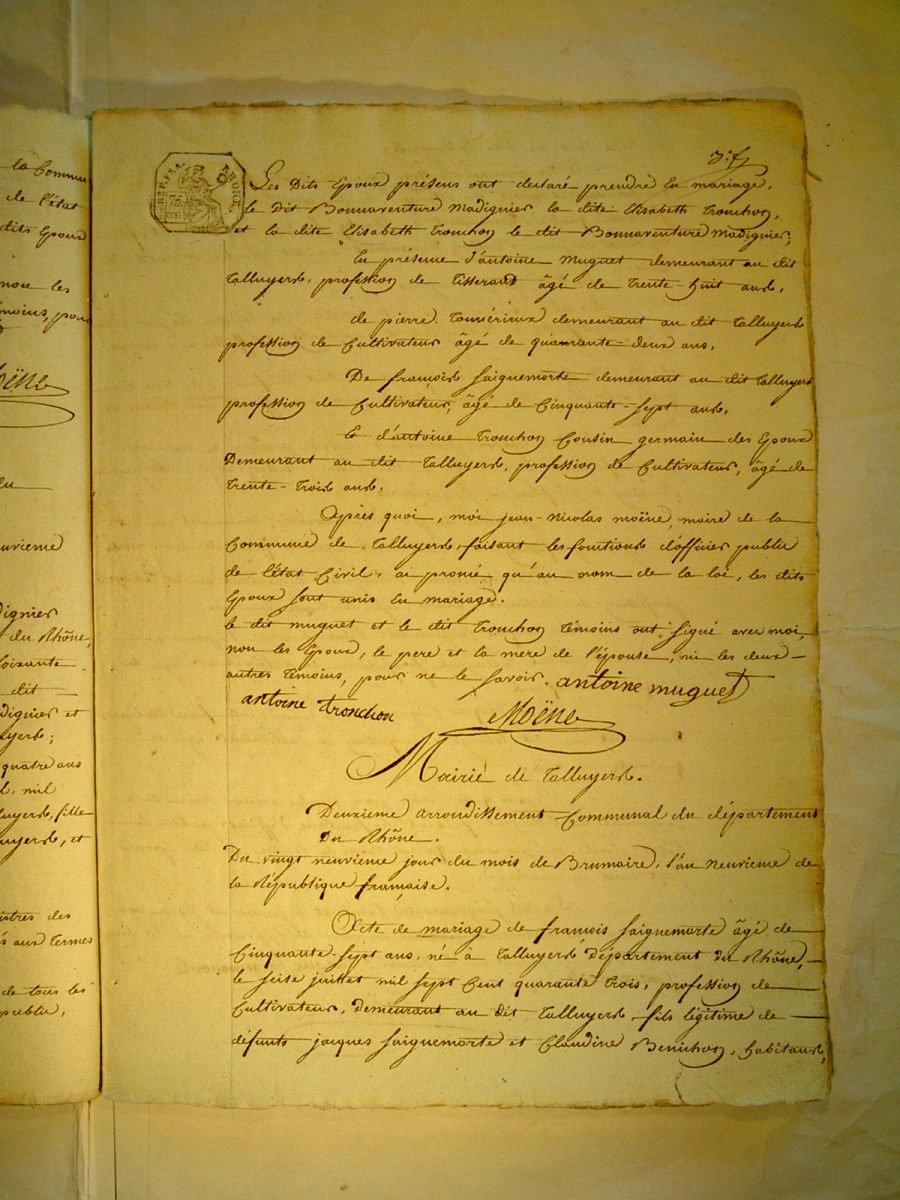 la Commu
de l'état
dits Epoux
non les
témoins, pour
Moëne
uvrieme
du Rhône,
soixante
dit
digniér et
uyers;
quatre ans
mil
uyers, fille
uyers, et
istres des
aux termes
de tous les
public,
3e f
REP. FRA. RHONE.
Les Dits Epoux présens ont déclaré prendre En mariage,
le Dit Bonnaventure Madignier la dite Elisabeth Tronchon,
et la dite Elisabeth Tronchon le dit Bonnaventure Madignier;
En présence d'antoine Muguet demeurant au dit
Talluyers, profession de Tisserand âgé de Trente-huit ans,
de pierre Tomérieux demeurant au dit Talluyers
profession de Cultivateur âgé de quarante deux ans,
De françois saiguemorte demeurant au dit Talluyers
profession de Cultivateur, âgé de Cinquante-sept ans,
Et d'antoine Tronchon Cousin germain des Epoux
Demeurant au dit Talluyers, profession de Cultivateur, âgé de
Trente-Trois ans.
Après quoi, moi jean-Nicolas moëne, maire de la
Commune de Talluyers, faisant les fonctions d'officier public
de l'état Civil, ai pronié qu'au nom de la loi, les dits
Epoux sont unis En mariage.
le dit muguet et le dit Tronchon Témoins ont signé avec moi,
non les Epoux, le pere et la mere de l'épouse, ni les deux
autres Témoins, pour ne le savoir. antoine muguet
antoine tronchon Moëne
Mairié de Talluyers.
Deuxieme arrondissement Communal du département
Du Rhône.
Du vingt neuvieme jour du mois de Brumaire, l'an Neuvieme de
la République française.
Acte de mariage de françois saiguemorte âgé de
Cinquante-sept ans, né à Talluyers Département du Rhône,
le seise juillet mil sept Cent quarante Trois, profession de
Cultivateur, Demeurant au dit Talluyers, fils légitime de
défunts jacques saiguemorte et Claudine Benichon, habitans,